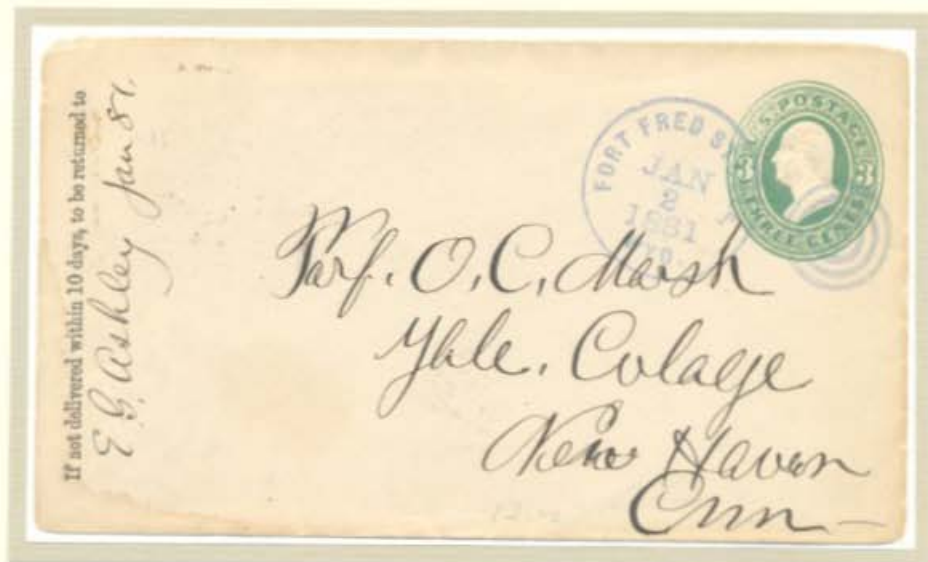 If not delivered within 10 days, to be returned to
E. G. Ashley Jan 81.
FORT FRED S
JAN
2
1881
U.S. POSTAGE
3 3
THREE CENTS
Prof. O. C. Marsh
Yale. Colage
New Haven
Cnn